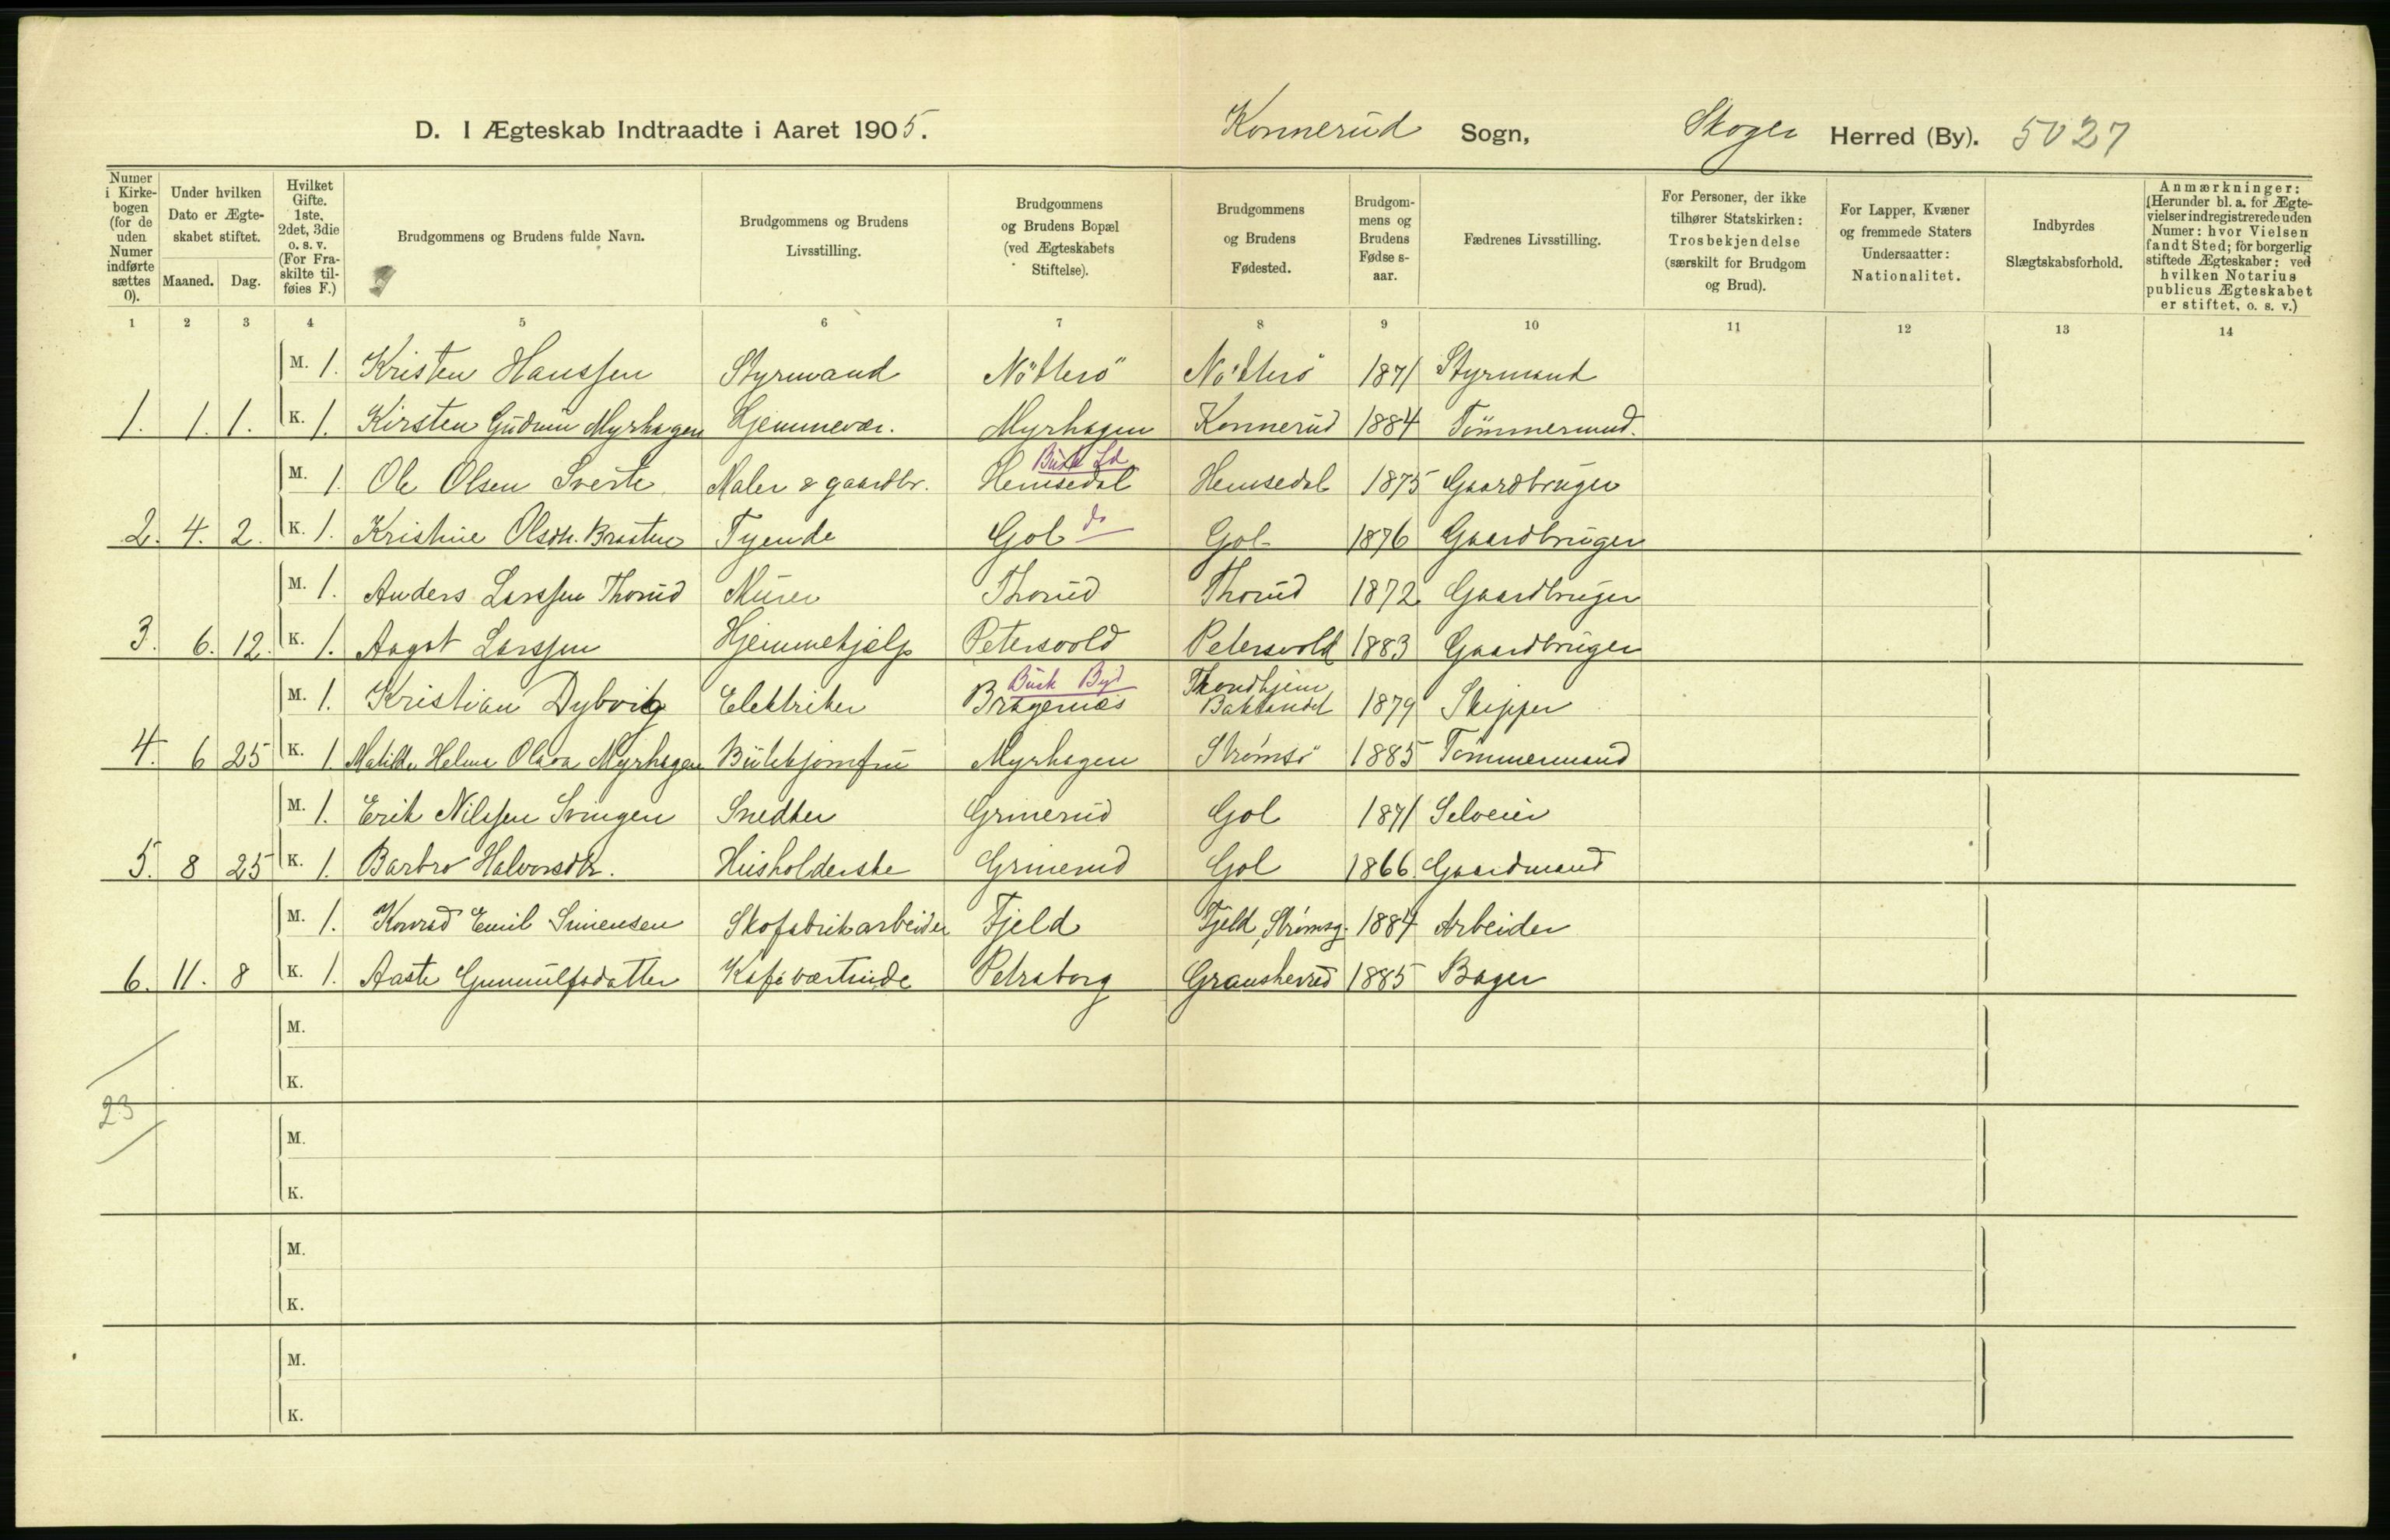 D. I Ægteskab Indtraadte i Aaret 1905. Konnerud Sogn, Skoger Herred (By). 5027
Numer i Kirkebogen (for de uden Numer indførte sættes 0).
Under hvilken Dato er Ægteskabet stiftet.
Maaned. Dag.
Hvilket Gifte. 1ste, 2det, 3die o. s. v. (For Fraskilte tilføies F.)
Brudgommens og Brudens fulde Navn.
Brudgommens og Brudens Livsstilling.
Brudgommens og Brudens Bopæl (ved Ægteskabets Stiftelse).
Brudgommens og Brudens Fødested.
Brudgommens og Brudens Fødselsaar.
Fædrenes Livsstilling.
For Personer, der ikke tilhører Statskirken: Trosbekjendelse (særskilt for Brudgom og Brud).
For Lapper, Kvæner og fremmede Staters Undersaatter: Nationalitet.
Indbyrdes Slægtskabsforhold.
Anmærkninger: (Herunder bl. a. for Ægtevielser indregistrerede uden Numer: hvor Vielsen fandt Sted; for borgerlig stiftede Ægteskaber: ved hvilken Notarius publicus Ægteskabet er stiftet, o. s. v.)
1 2 3 4 5 6 7 8 9 10 11 12 13 14
M. 1. Kristen Hanssen Styrmand Nötterö Nötterö 1871 Styrmand
1. 1. 1. K. 1. Kirsten Gudrun Myrhagen Hjemmevær. Myrhagen Konnerud 1884 Tömmermand.
Busk Ld
M. 1. Ole Olsen Maler & gaardbr. Hemsedal Hemsedal 1875 Gaardbruger
2. 4. 2. K. 1. Kristine Olsdtr. Braaten Tyende Gol do Gol 1876 Gaardbruger
M. 1. Anders Larssen Thorud Murer Thorud Thorud 1872 Gaardbruger
3. 6. 12. K. 1. Aagot Larssen Hjemmehjælp Petersvold Petersvold 1883 Gaardbruger
Busk Byd Throndhjem
M. 1. Kristian Dybvig Elektriker Bragernæs Baklandet 1879 Skipper
4. 6 25 K. 1. Matilde Helma Olava Myrhagen Butikjomfru Myrhagen Strømsö 1885 Tömmermand
M. 1. Erik Nilssen Svingen Snedker Grinerud Gol 1871 Selveier
5. 8 25 K. 1. Barbro Halvorsdtr. Husholderske Grinerud Gol 1866 Gaardmand
M. 1. Konrad Emil Simensen Skofabrikarbeider Fjeld Fjeld, Strømsg. 1884 Arbeider
6. 11. 8 K. 1. Aaste Gunnulfsdatter Kafeværtinde Petraborg Gransherred 1885 Bager
M.
K.
23
M.
K.
M.
K.
M.
K.